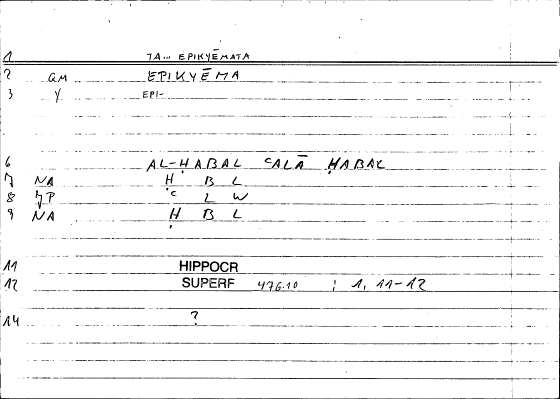 1 TA... EPIKYĒMATA
2 QM EPIKYĒMA
3 Y EPI-
6 AL-ḤABAL ᶜALĀ ḤABAL
7 NA Ḥ B L
8 JP ᶜ L W
9 NA Ḥ B L
11 HIPPOCR
12 SUPERF 476.10 ; 1, 11-12
14 ?